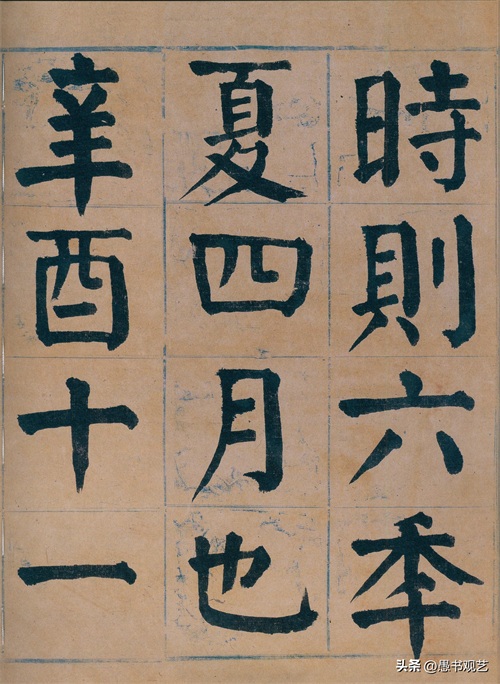 時則六秊
夏四月也
辛酉十一
头条 @愚书观艺